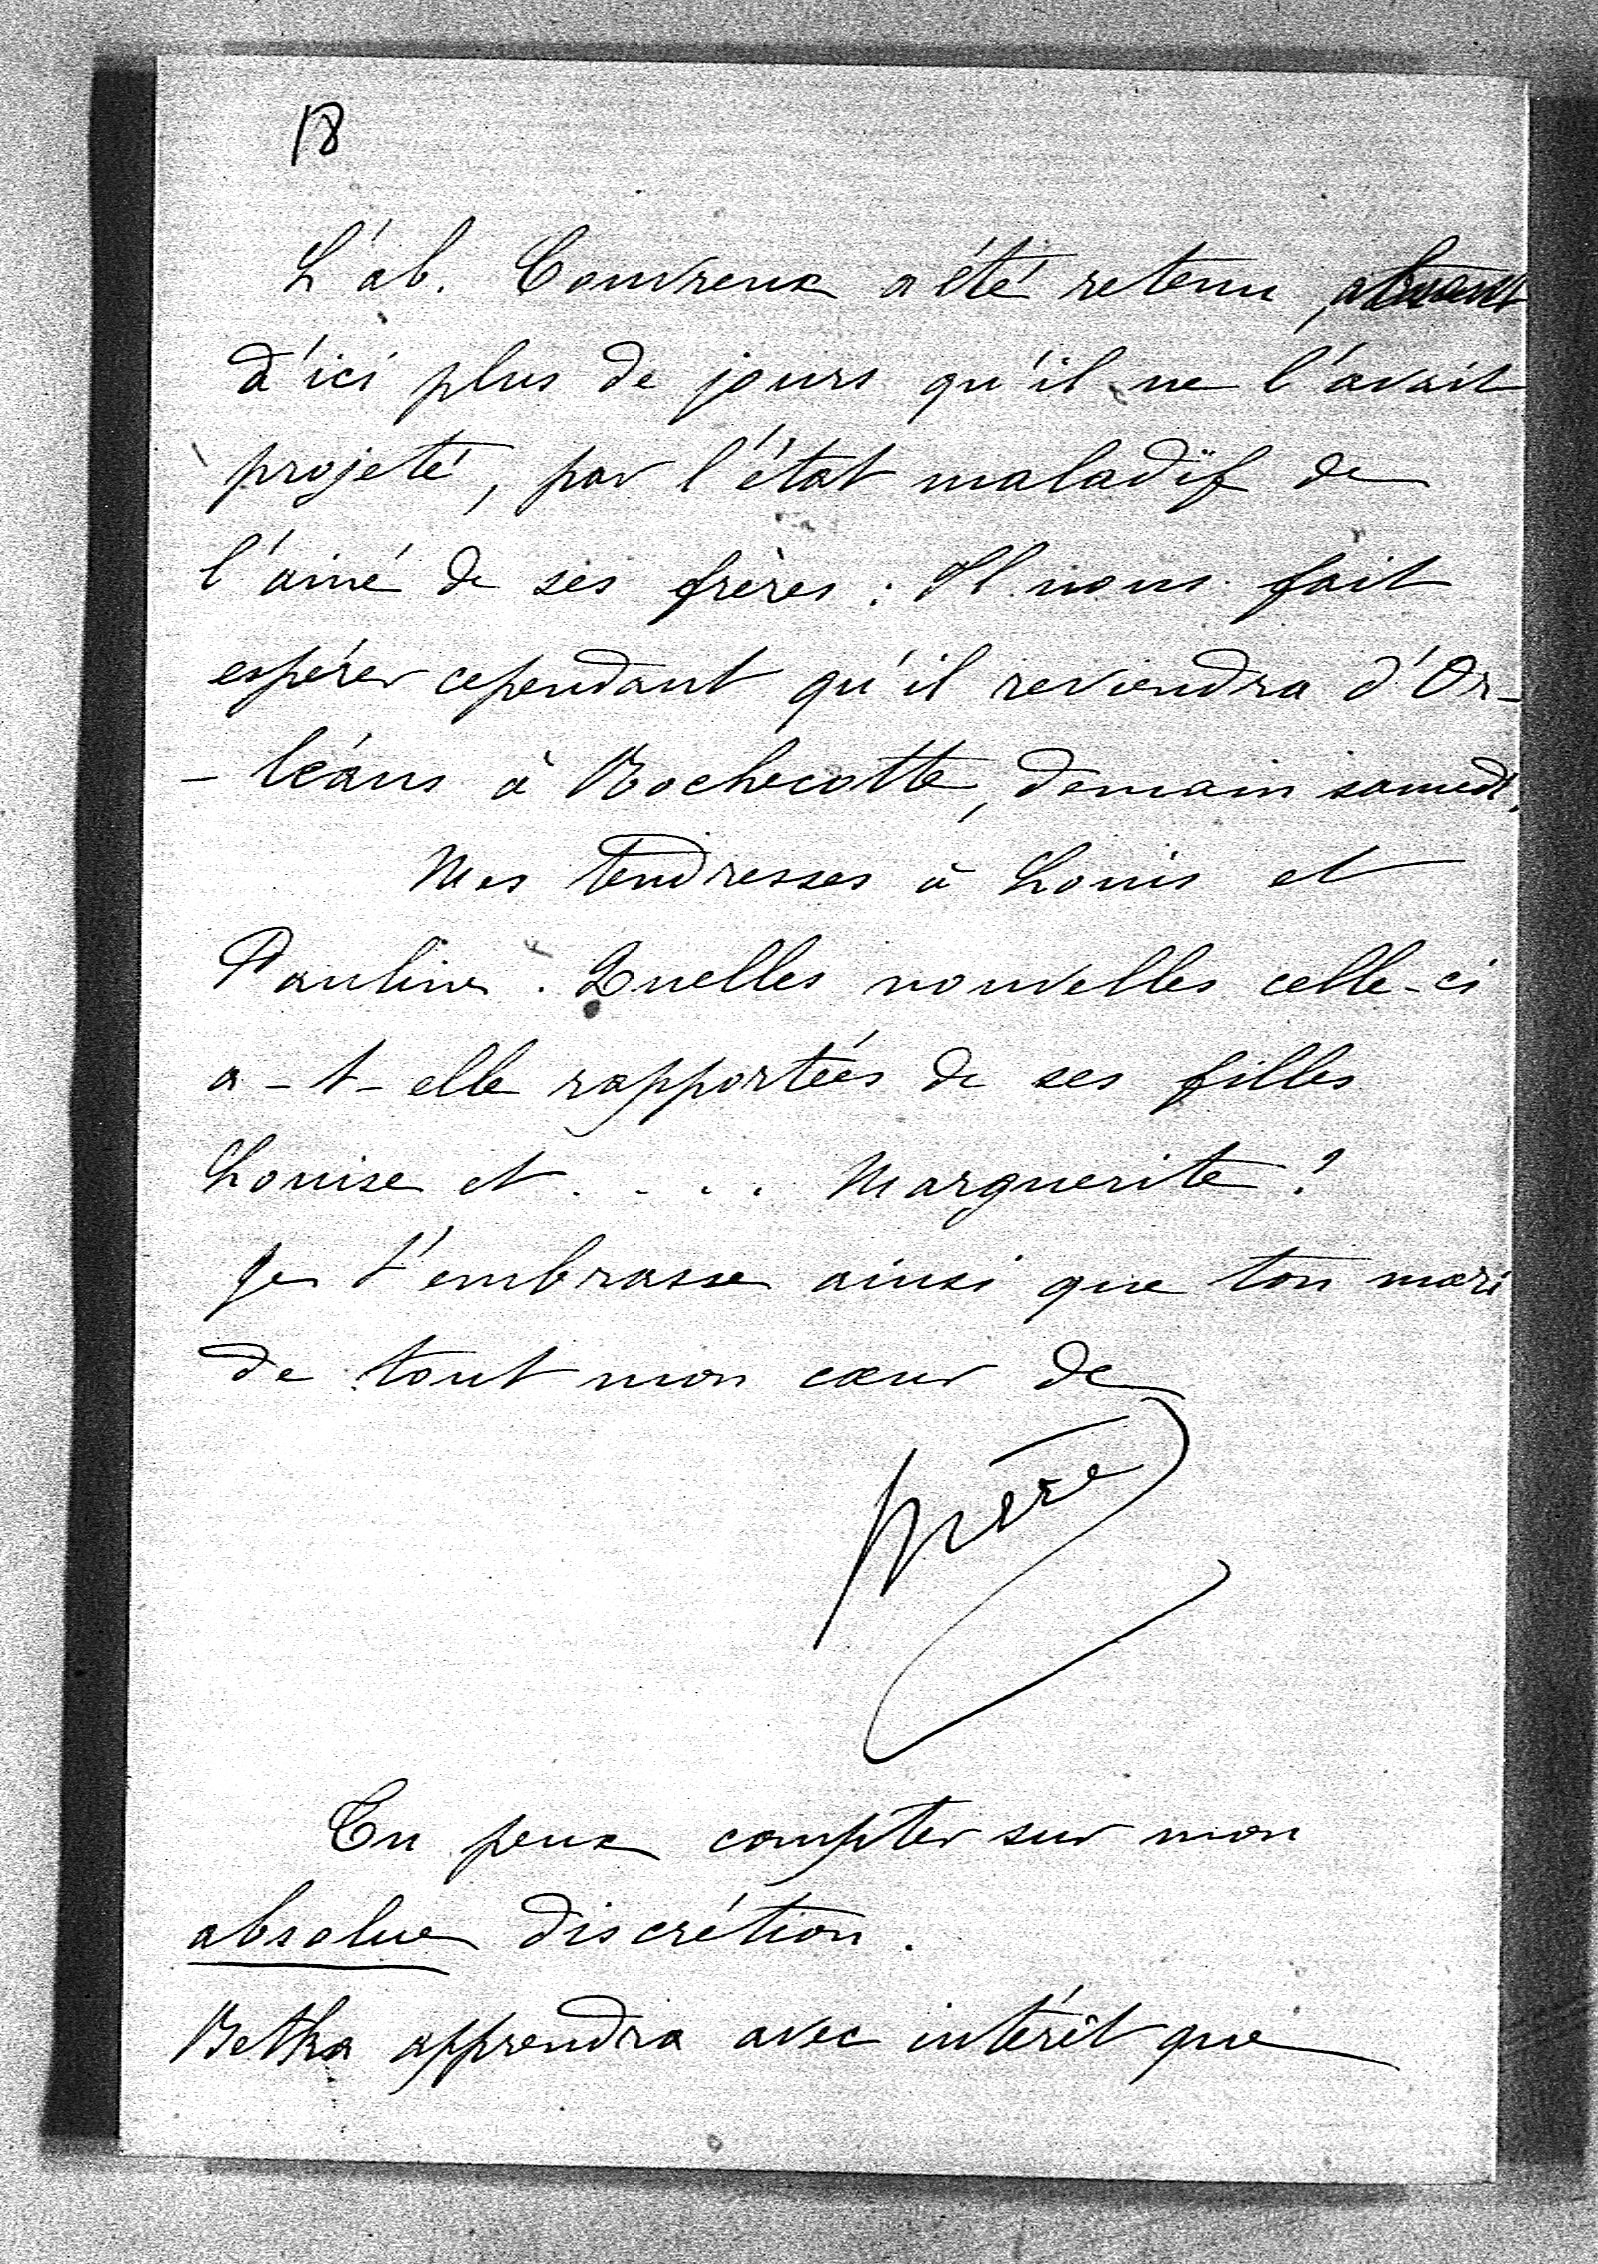 18
L'ab. Couvreux a été retenu, absent
d'ici plus de jours qu'il ne l'avait
projeté, par l'état maladif de
l'ainé de ses frères : Il nous fait
espérer cependant qu'il reviendra d'Or-
- léans à Rochecotte, demain samedi.
Mes tendresses à Louis et
Pauline. Quelles nouvelles celle-ci
a-t-elle rapportées de ses filles
Louise et .... Marguerite ?
Je t'embrasse ainsi que ton mari
de tout mon cœur de
mère
Tu peux compter sur mon
absolue discrétion.
Betka apprendra avec intérêt que